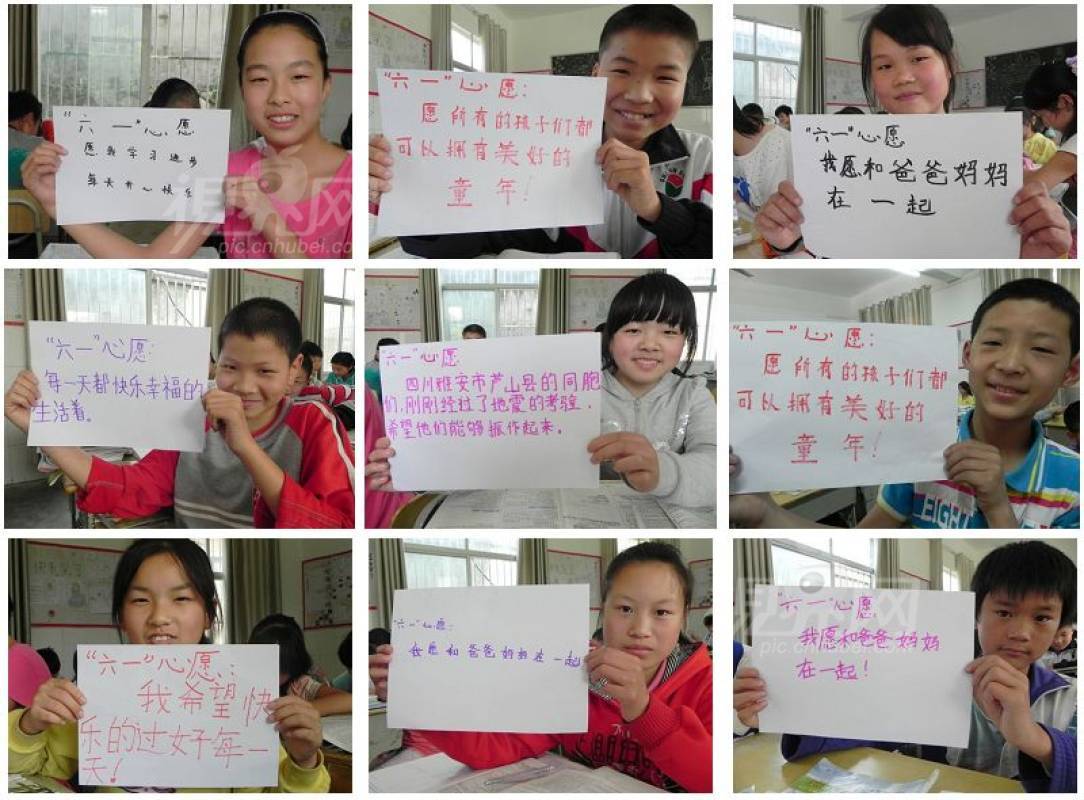 “六一”心愿
愿我学习进步
每天开心快乐
视界网
pic.cnhubei.com
“六一”心愿：
愿所有的孩子们都
可以拥有美好的
童年！
“六一”心愿
我愿和爸爸妈妈
在一起
“六一”心愿：
每一天都快乐幸福的
生活着。
“六一”心愿：
四川雅安市芦山县的同胞
们，刚刚经过了地震的考验，
希望他们能够振作起来。
“六一”心愿：
愿所有的孩子们都
可以拥有美好的
童年！
EIGH
“六一”心愿：
我希望快
乐的过好每一
天！
“六一”心愿：
我愿和爸爸妈妈在一起
“六一”心愿：
我愿和爸爸妈妈
在一起！
视界网
pic.cnhubei.com